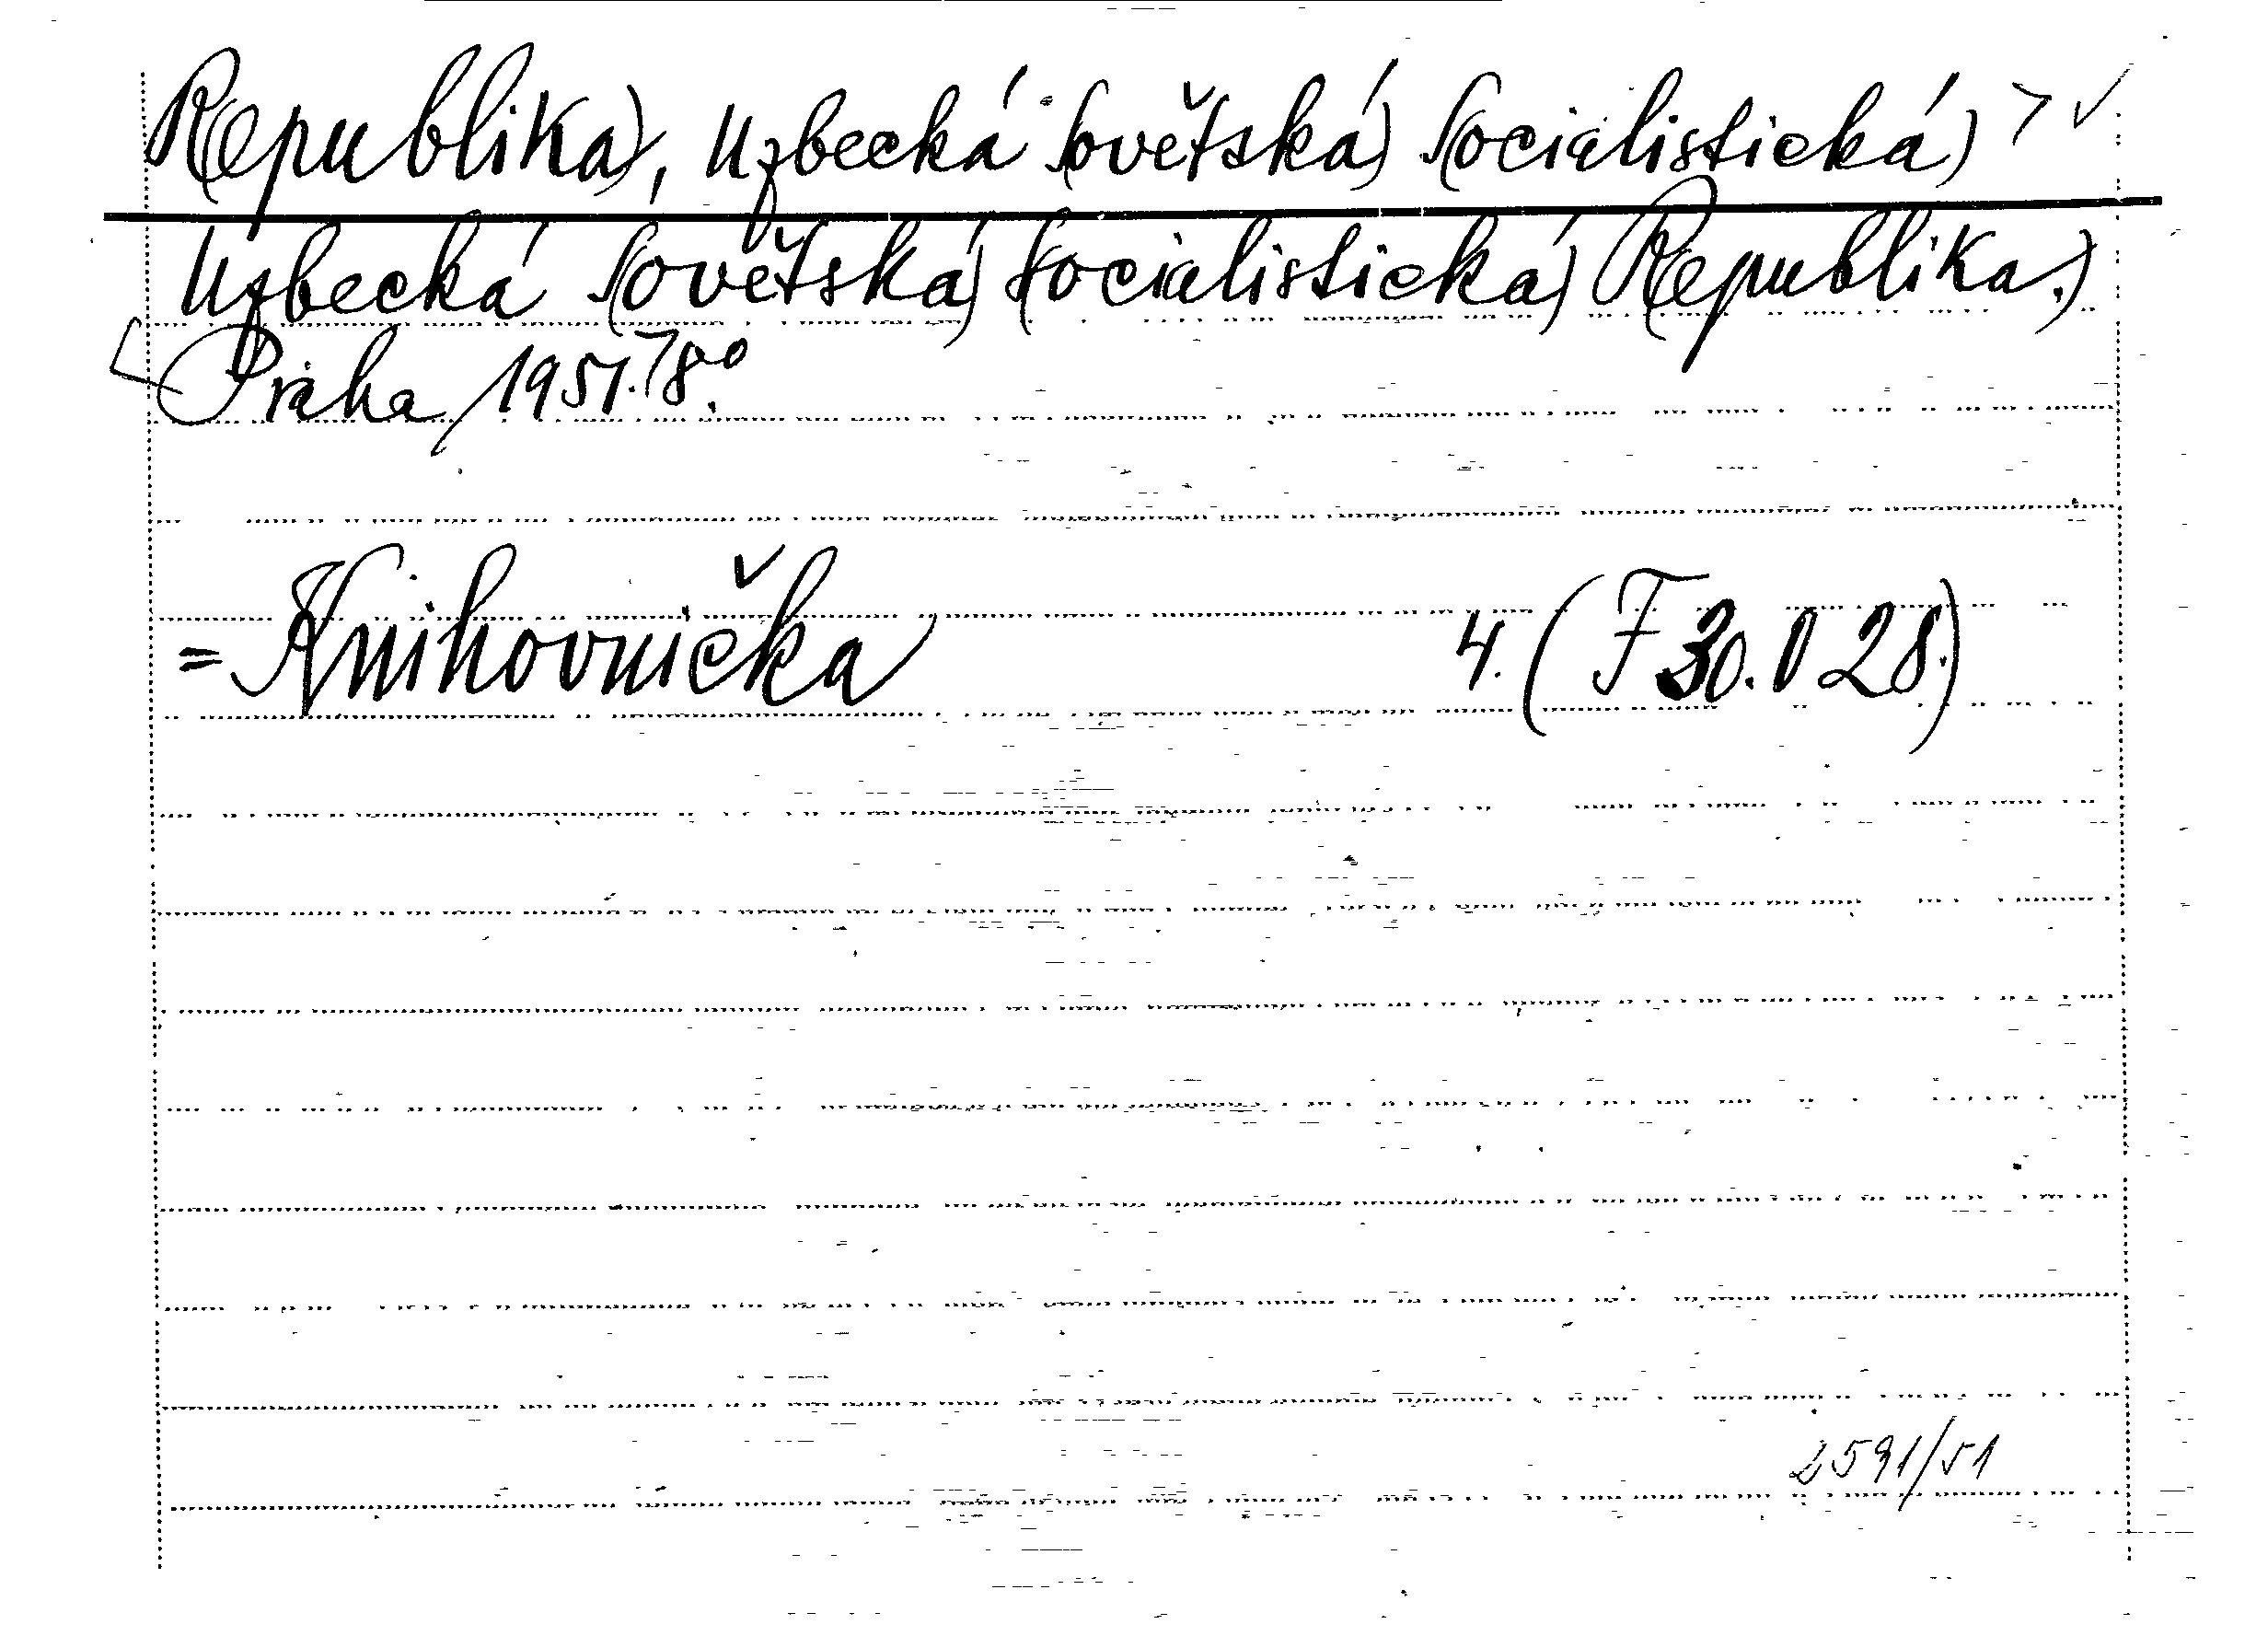 R(epublika), Uzbecká S(ovětská) S(ocialistická)
Uzbecká S(ovětská) S(ocialistická) R(epublika.)
[Praha 1951.] 8°.
= Knihovnička 4. (F 30.028.)
2591/51